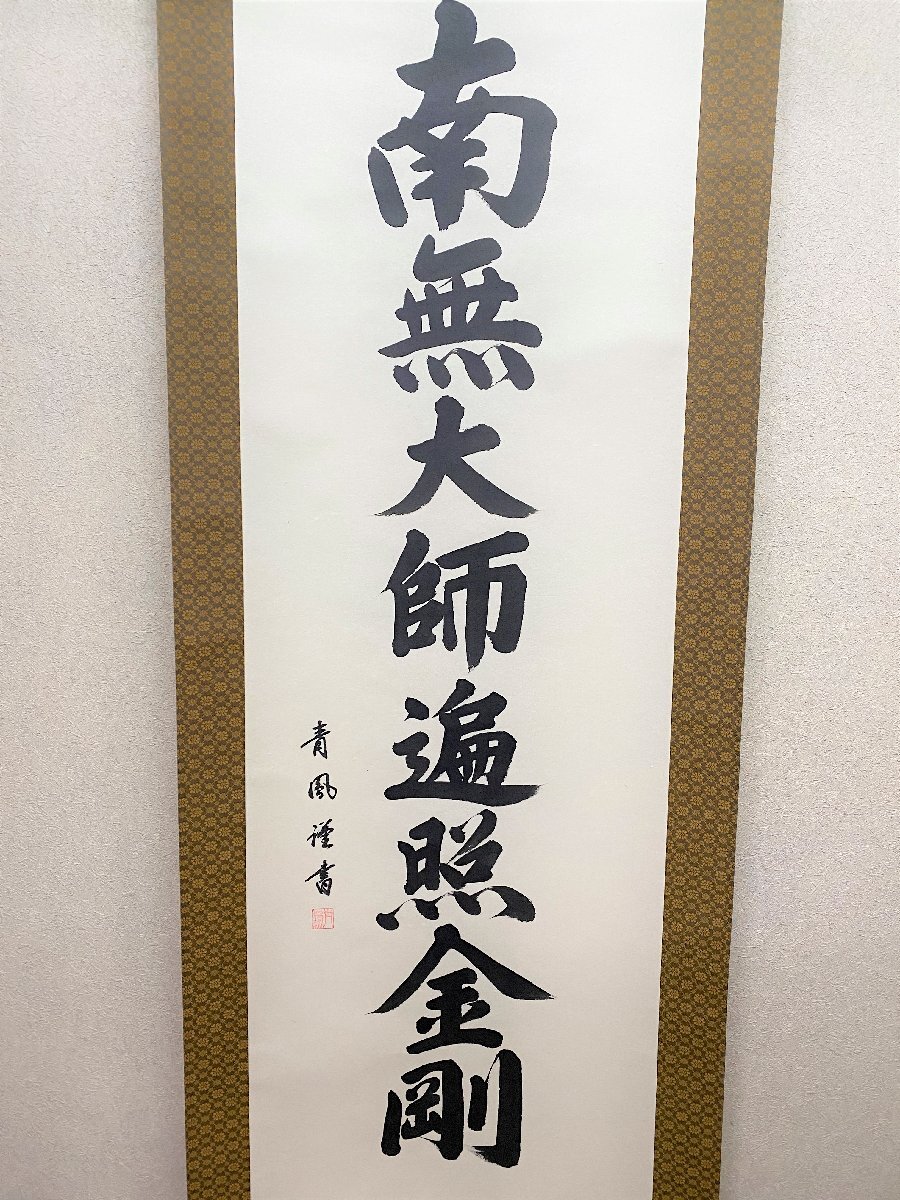 南無大師遍照金剛
青鳳謹書